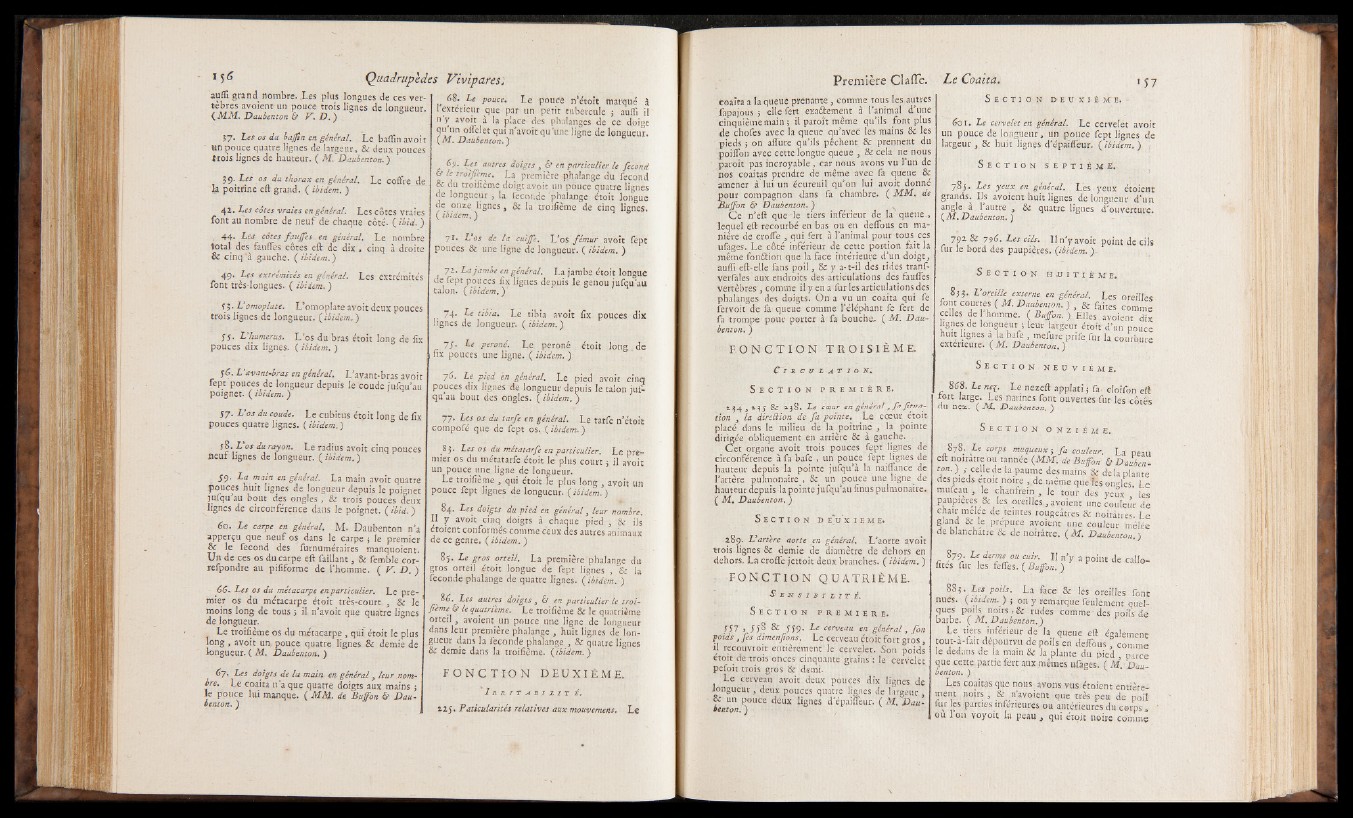 156 Quadrupèdes Vivipares.
auſſi grand nombre. Les plus longues de ces ver-
tèbres avoient un pouce trois lignes de longueur.
(MM. Daubenton & V. D.)
37. Les os du baſſin en général. Le baſſin avoit
un pouce quatre lignes de largeur, & deux pouces
trois lignes de hauteur. (M. Daubenton.)
39. Les os du thorax en général. Le coffre de
la poitrine eſt grand. (ibidem.)
42. Les côtes vraies en général. Les côtes vraies
ſont au nombre de neuf de chaque côté. (ibid.)
44. Les côtes fauſſes en général. Le nombre
total des fauſſes côtes eſt de dix, cinq à droite
& cinq à gauche. (ibidem.)
49. Les extrémités en général. Les extrémités
ſont très-longues. (ibidem.)
53. L'omoplate. L'omoplate avoit deux pouces
trois lignes de longueur. (ibidem.)
55. L'humerus. L'os du bras étoit long de ſix
pouces dix lignes. (ibidem.)
56. L'avant-bras en général. L'avant-bras avoit
ſept pouces de longueur depuis le coude juſqu'au
poignet. (ibidem.)
57. L'os du coude. Le cubitus étoit long de ſix
pouces quatre lignes. (ibidem.)
58. L'os du rayon. Le radius avoit cinq pouces
neuf lignes de longueur. (ibidem.)
59. La main en général. La main avoit quatre
pouces huit lignes de longueur depuis le poignet
juſqu'au bout des ongles, & trois pouces deux
lignes de circonférence dans le poignet. (ibid.)
60. Le carpe en général. M. Daubenton n'a
apperçu que neuf os dans le carpe; le premier
& le ſecond des ſurnuméraires manquoient.
Un de ces os du carpe eſt ſaillant, & ſemble cor-
reſpondre au piſiforme de l'homme. (V. D.)
66. Les os du métacarpe en particulier. Le pre-
mier os du métacarpe étoit très-court, & le
moins long de tous; il n'avoit que quatre lignes
de longueur.
Le troiſième os du métacarpe, qui étoit le plus
long, avoit un pouce quatre lignes & demie de
longueur. (M. Daubenton.)
67. Les doigts de la main en général, leur nom-
bre. Le coaita n'a que quatre doigts aux mains;
le pouce lui manque. (MM. de Buffon & Dau-
benton.)
68. Le pouce. Le pouce n'étoit marqué à
l'extérieur que par un petit tubercule; auſſi il
n'y avoit à la place des phalanges de ce doigt
qu'un oſſelet qui n'avoit qu'une ligne de longueur.
(M. Daubenton.)
69. Les autres doigts, & en particulier le ſecond
& le troiſième. La première phalange du ſecond
& du troiſième doigt avoit un pouce quatre lignes
de longueur; la ſeconde phalange étoit longue
de onze lignes, & la troiſième de cinq lignes.
(ibidem.)
71. L'os de la cuiſſe. L'os fémur avoit ſept
pouces & une ligne de longueur. (ibidem.)
72. La jambe en général. La jambe étoit longue
de ſept pouces ſix lignes depuis le genou juſqu'au
talon. (ibidem.)
74. Le tibia. Le tibia avoit ſix pouces dix
lignes de longueur. (ibidem.)
75. Le peroné. Le peroné étoit long de
ſix pouces une ligne. (ibidem.)
76. Le pied en général. Le pied avoit cinq
pouces dix lignes de longueur depuis le talon juſ-
qu'au bout des ongles. (ibidem.)
77. Les os du tarſe en général. Le tarſe n'étoit
compoſé que de ſept os. (ibidem.)
83. Les os du métatarſe en particulier. Le pre-
mier os du métatarſe étoit le plus court; il avoit
un pouce une ligne de longueur.
Le troiſième, qui étoit le plus long, avoit un
pouce ſept lignes de longueur. (ibidem.)
84. Les doigts du pied en général, leur nombre.
Il y avoit cinq doigts à chaque pied, & ils
étoient conformés comme ceux des autres animaux
de ce genre. (ibidem.)
85. Le gros orteil. La première phalange du
gros orteil étoit longue de ſept lignes, & la
ſeconde phalange de quatre lignes. (ibidem.)
86. Les autres doigts, & en particulier le troi-
ſième & le quatrième. Le troiſième & le quatrième
orteil, avoient un pouce une ligne de longueur
dans leur première phalange, huit lignes de lon-
gueur dans la ſeconde phalange, & quatre lignes
& demie dans la troiſième. (ibidem.)
FONCTION DEUXIÈME.
IRRITABILITÉ.
225. Paticularités relatives aux mouvemens. Le
Première Claſſe. Le Coaita. 157
coaita a la queue prenante, comme tous les autres
ſapajous; elle ſert exactement à l'animal d'une
cinquième main; il paroît même qu'ils font plus
de choſes avec la queue qu'avec les mains & les
pieds; on aſſure qu'ils pêchent & prennent du
poiſſon avec cette longue queue, & cela ne nous
paroît pas incroyable, car nous avons vu l'un de
nos coaitas prendre de même avec ſa queue &
amener à lui un écureuil qu'on lui avoit donné
pour compagnon dans ſa chambre. (MM. de
Buffon & Daubenton.)
Ce n'eſt que le tiers inférieur de la queue,
lequel eſt recourbé en bas ou en deſſous en ma-
nière de croſſe, qui ſert à l'animal pour tous ces
uſages. Le côté inférieur de cette portion fait la
même fonction que la face intérieure d'un doigt,
auſſi eſt-elle ſans poil, & y a-t-il des rides tranſ-
verſales aux endroits des articulations des fauſſes
vertèbres, comme il y en a ſur les articulations des
phalanges des doigts. On a vu un coaita qui ſe
ſervoit de ſa queue comme l'éléphant ſe ſert de
ſa trompe pour porter à ſa bouche. (M. Dau-
benton.)
FONCTION TROISIÈME.
CIRCULATION.
SECTION PREMIÈRE.
234, 235 & 238. Le cœur en général, ſa ſitua-
tion, la direction de ſa pointe. Le cœur étoit
placé dans le milieu de la poitrine, la pointe
dirigée obliquement en arrière & à gauche.
Cet organe avoit trois pouces ſept lignes de
circonférence à ſa baſe, un pouce ſept lignes de
hauteur depuis la pointe juſqu'à la naiſſance de
l'artère pulmonaire, & un pouce une ligne de
hauteur depuis la pointe juſqu'au ſinus pulmonaire.
(M. Daubenton.)
SECTION DEUXIEME.
289. L'artère aorte en général. L'aorte avoit
trois lignes & demie de diamètre de dehors en
dehors. La croſſe jettoit deux branches. (ibidem.)
FONCTION QUATRIÈME.
SENSIBILITÉ.
SECTION PREMIERE.
557, 558 & 559. Le cerveau en général, ſon
poids, ſes dimenſions. Le cerveau étoit fort gros,
il recouvroit entièrement le cervelet. Son poids
étoit de trois onces cinquante grains: le cervelet
peſoit trois gros & demi.
Le cerveau avoit deux pouces dix lignes de
longueur, deux pouces quatre lignes de largeur,
& un pouce deux lignes d'épaiſſeur. (M. Dau-
benton.)
SECTION DEUXIÈME.
601. Le cervelet en général. Le cervelet avoit
un pouce de longueur, un pouce ſept lignes de
largeur, & huit lignes d'épaiſſeur. (ibidem.)
SECTION SEPTIÉME.
783. Les yeux en général. Les yeux étoient
grands. Ils avoient huit lignes de longueur d'un
angle à l'autre, & quatre lignes d'ouverture.
(M. Daubenton.)
792 & 796. Les cils. Il n'y avoit point de cils
ſur le bord des paupières. (ibidem.)
SECTION HUITIÈME.
833. L'oreille externe en général. Les oreilles
ſont courtes (M. Daubenton.), & faites comme
celles de l'homme. (Buffon.) Elles avoient dix
lignes de longueur; leur largeur étoit d'un pouce
huit lignes à la baſe, meſure priſe ſur la courbure
extérieure. (M. Daubenton.)
SECTION NEUVIEME.
868. Le nez. Le nez eſt applati; ſa cloiſon eſt
fort large. Les narines ſont ouvertes ſur les côtés
du nez. (M. Daubenton.)
SECTION ONZIÉME.
878. Le corps muqueux; ſa couleur. La peau
eſt noirâtre ou tannée (MM. de Buffon & Dauben-
ton.); celle de la paume des mains & de la plante
des pieds étoit noire, de même que les ongles. Le
muſeau, le chanfrein, le tour des yeux, les
paupières & les oreilles, avoient une couleur de
chair mêlée de teintes rougeâtres & noirâtres. Le
gland & le prépuce avoient une couleur mêlée
de blanchâtre & de noirâtre. (M. Daubenton.)
879. Le derme ou cuir. Il n'y a point de callo-
ſités ſur les feſſes. (Buffon.)
883. Les poils. La face & les oreilles ſont
nues. (ibidem.); on y remarque ſeulement quel-
ques poils noirs & rudes comme des poils de
barbe. (M. Daubenton.)
Le tiers inférieur de la queue eſt également
tout-à-fait dépourvu de poils en deſſous, comme
le dedans de la main & la plante du pied, parce
que cette partie ſert aux mêmes uſages. (M. Dau-
benton.)
Les coaitas que nous avons vus étoient entière-
ment noirs, & n'avoient que très peu de poil
ſur les parties inférieures ou antérieures du corps,
où l'on voyoit la peau, qui étoit noire comme